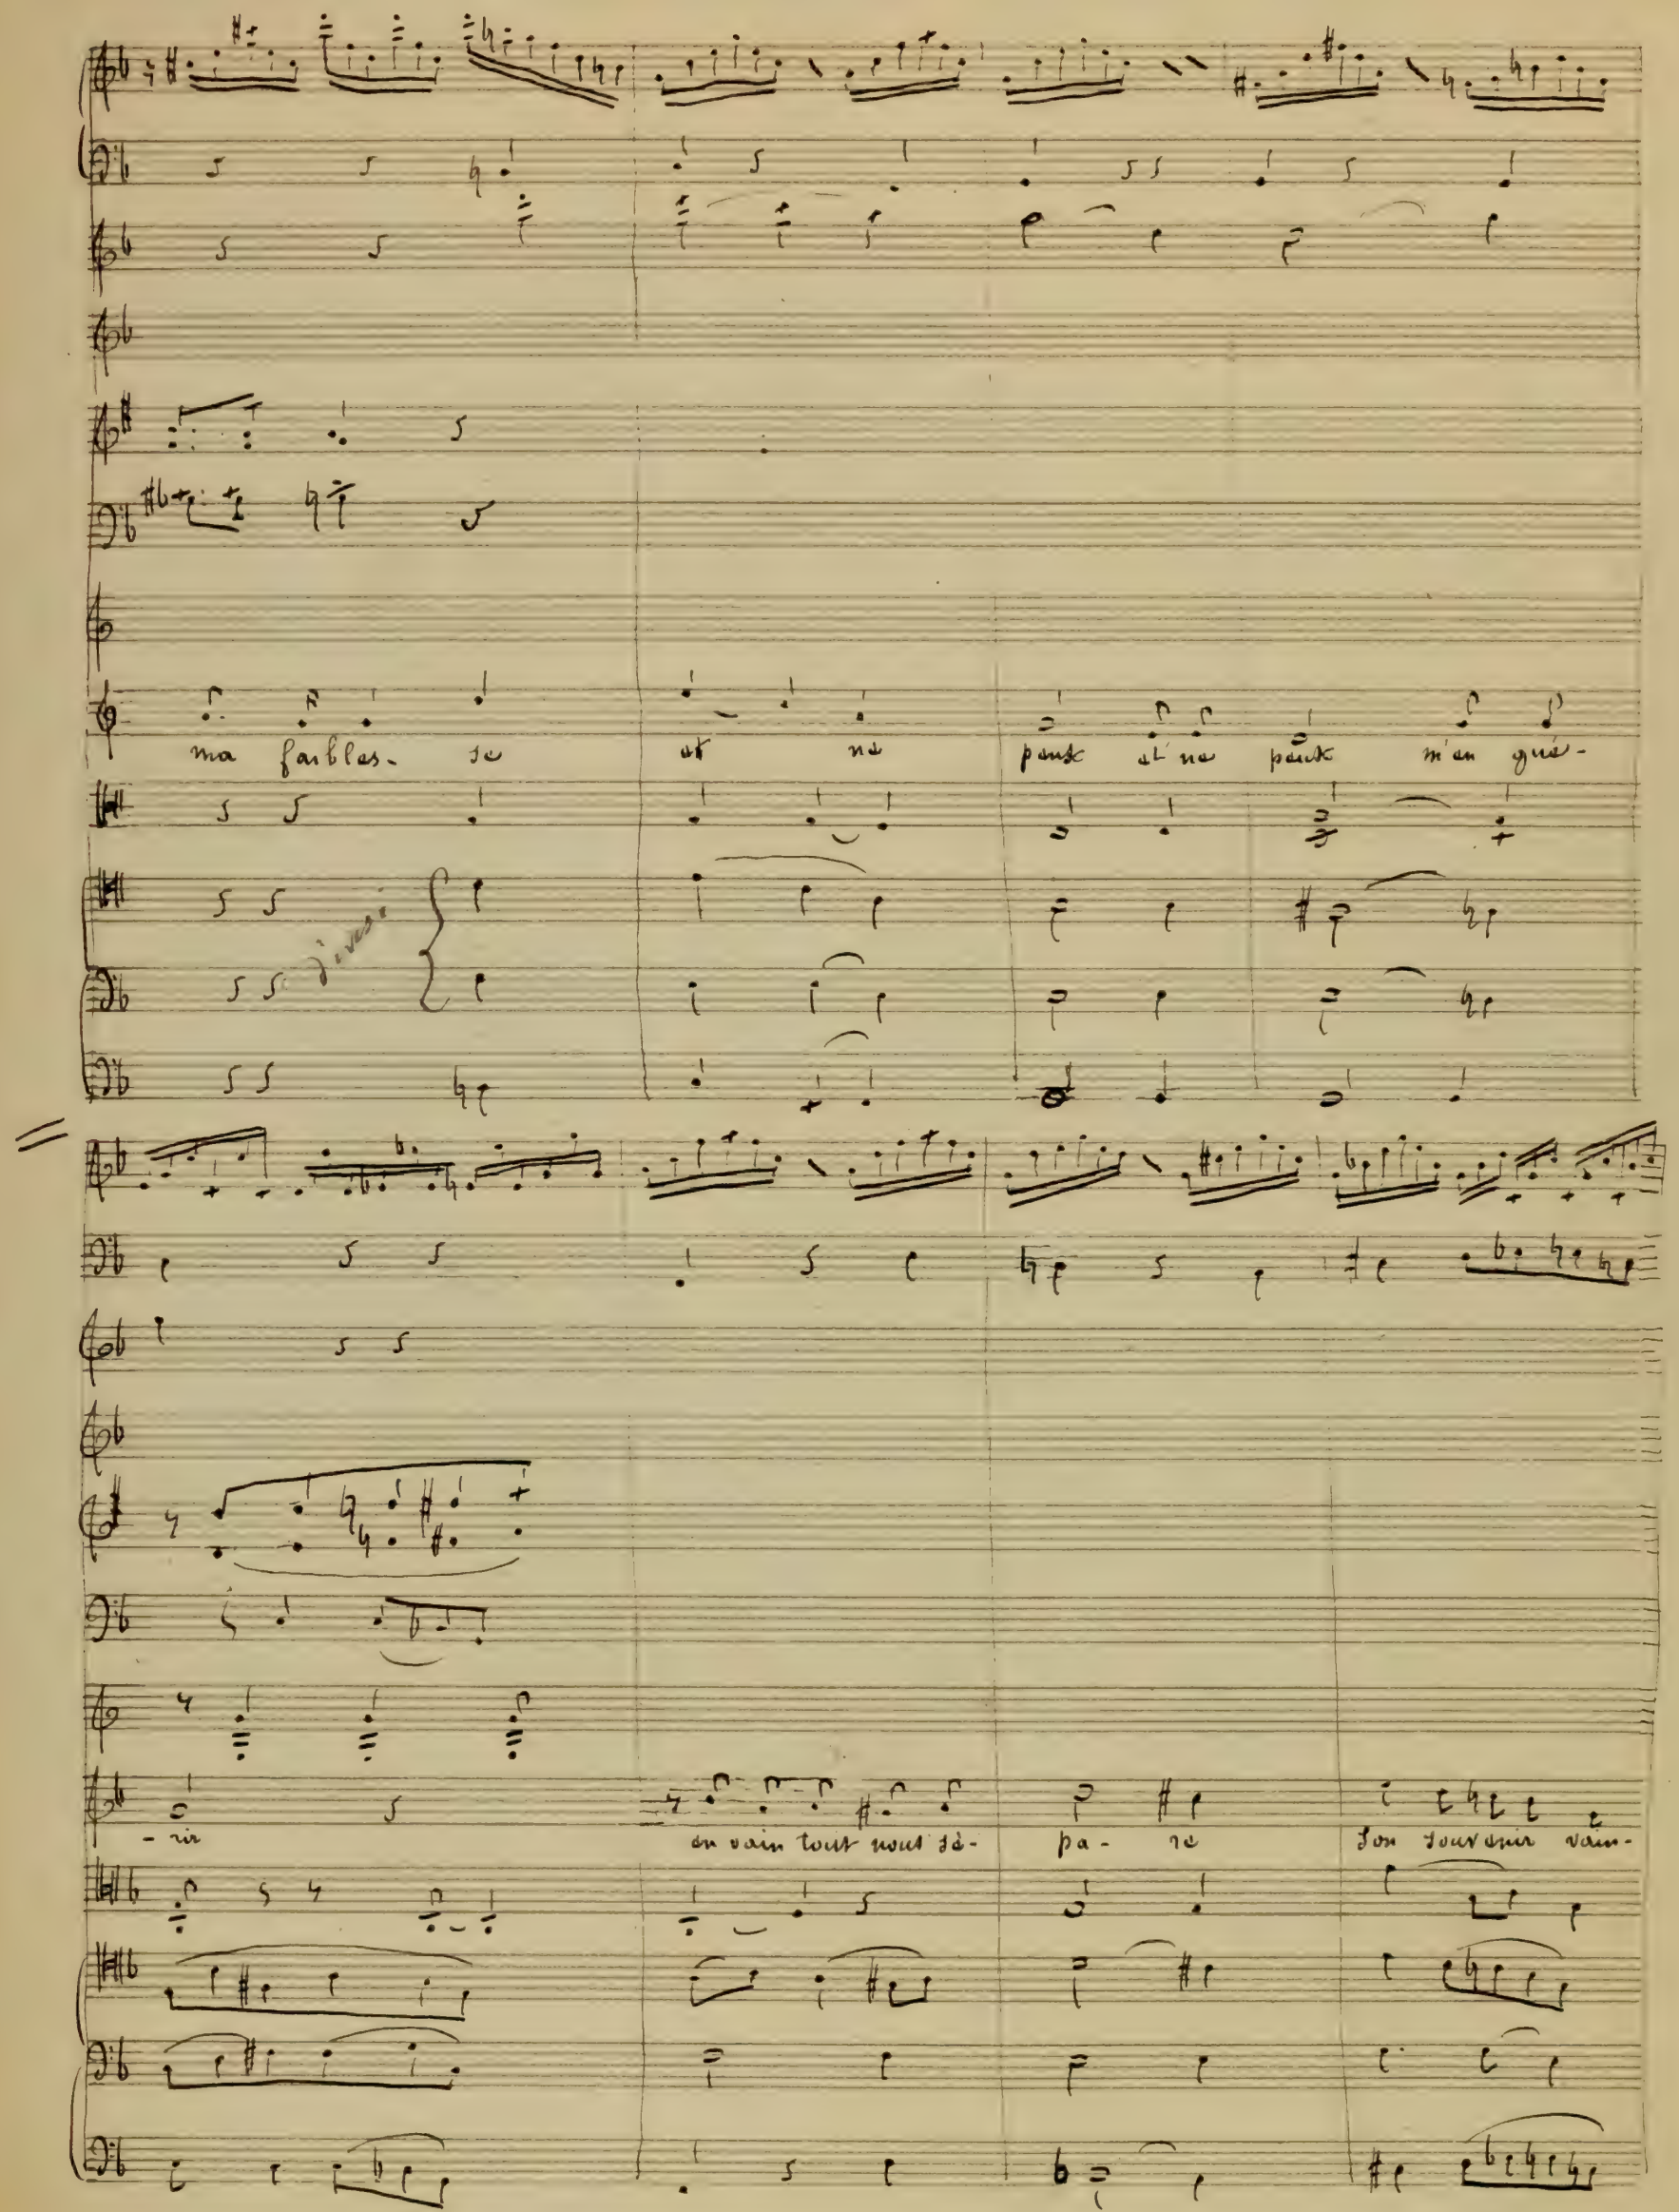 ma faibles- se et ne peut et ne peut m'en gué-
divisi
- rir en vain tout nous sé- pa- re son souvenir vain-